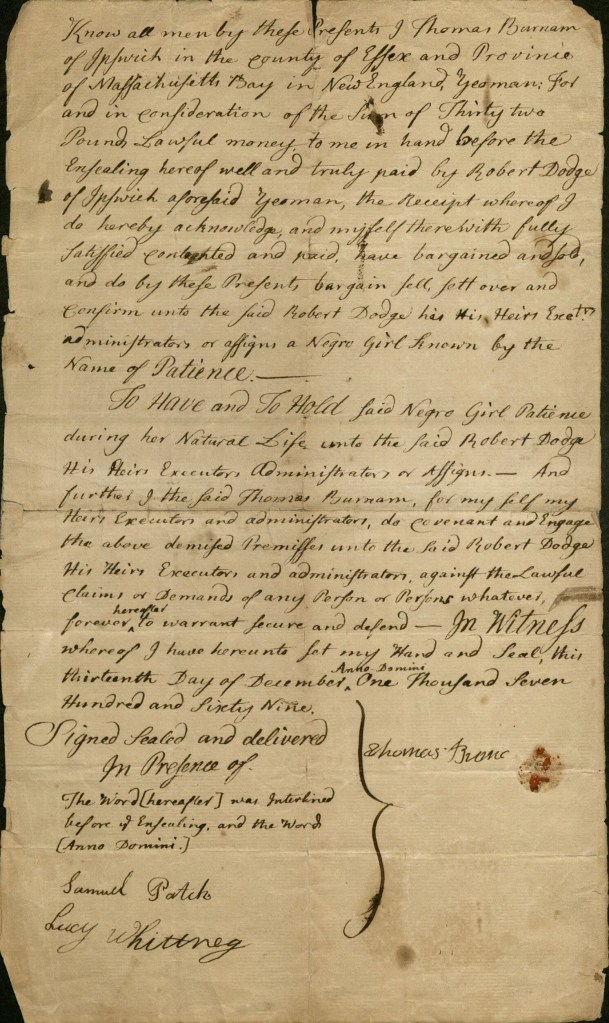 Know all men by these Presents I Thomas Burnam
of Ipswich in the county of Essex and Province
of Massachusetts Bay in New England, Yeoman: For
and in consideration of the Sum of Thirty two
Pounds Lawful money, to me in hand before the
Ensealing hereof well and truly paid by Robert Dodge
of Ipswich aforesaid Yeoman, the Receipt whereof I
do hereby acknowledge, and myself therewith fully
satisfied contented and paid, have bargained and sold,
and do by these Presents bargain sell, sett over and
confirm unto the said Robert Dodge his His Heirs Exetrs
administrators or assigns a Negro Girl known by the
Name of Patience. —
To Have and To Hold said Negro Girl Patience
during her Natural Life unto the said Robert Dodge
His Heirs Executors Administrators or Assigns. — And
further I the said Thomas Burnam, for my self my
Heirs Executors and administrators, do covenant and Engage
the above demised Premisses unto the said Robert Dodge
His Heirs Executors and administrators, against the Lawful
Claims or Demands of any Person or Persons whatever,
forever hereafter to warrant secure and defend — In Witness
whereof I have hereunto set my Hand and Seal, this
thirteenth Day of December, Anno Domini One Thousand Seven
Hundred and Sixty Nine.
Signed Sealed and delivered
In Presence of.
Thomas
The Word [hereafter] was Interlined
before ye Ensealing, and the Words
[Anno Domini.]
Samuel Patch
Lucy Whittney